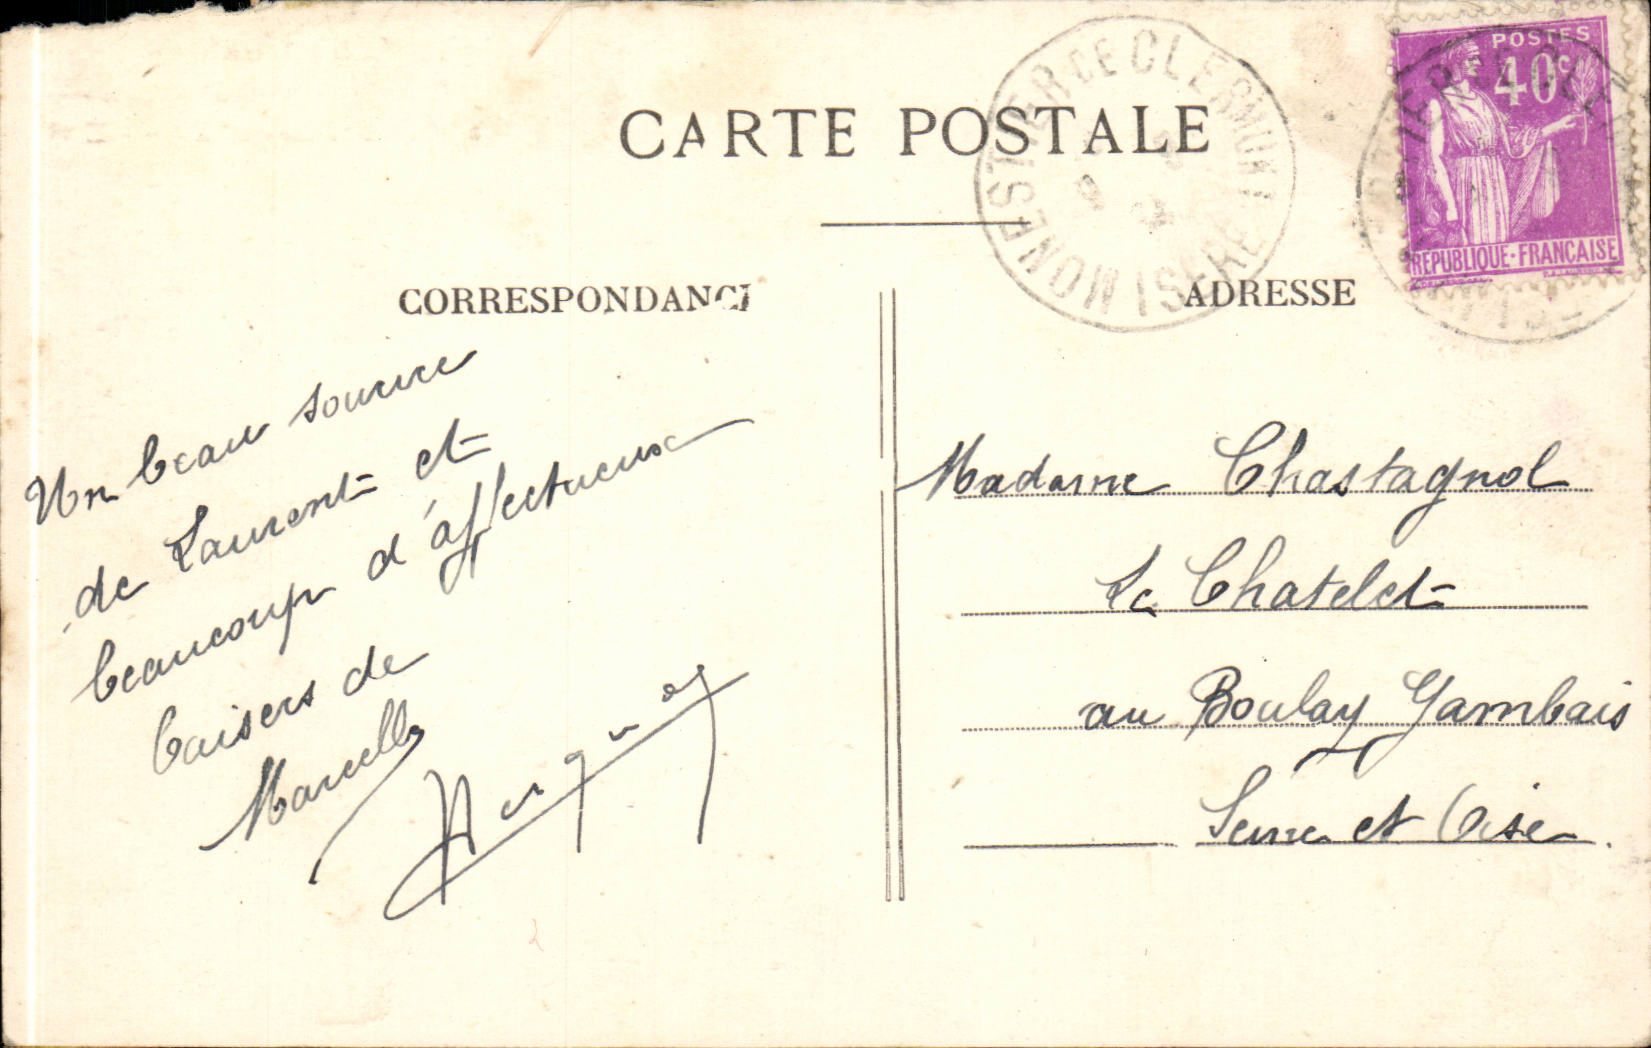 CARTE POSTALE
CORRESPONDANCE
Un beau sourire
de Laurent et
beaucoup d'affectueux
baisers de
Marcelle
ADRESSE
Madame Chastagnol
Le Chatelet
au Boulay Gambais
Seine et Oise
POSTES
40c
REPUBLIQUE-FRANÇAISE
MONESTIER DE CLERMONT
ISERE